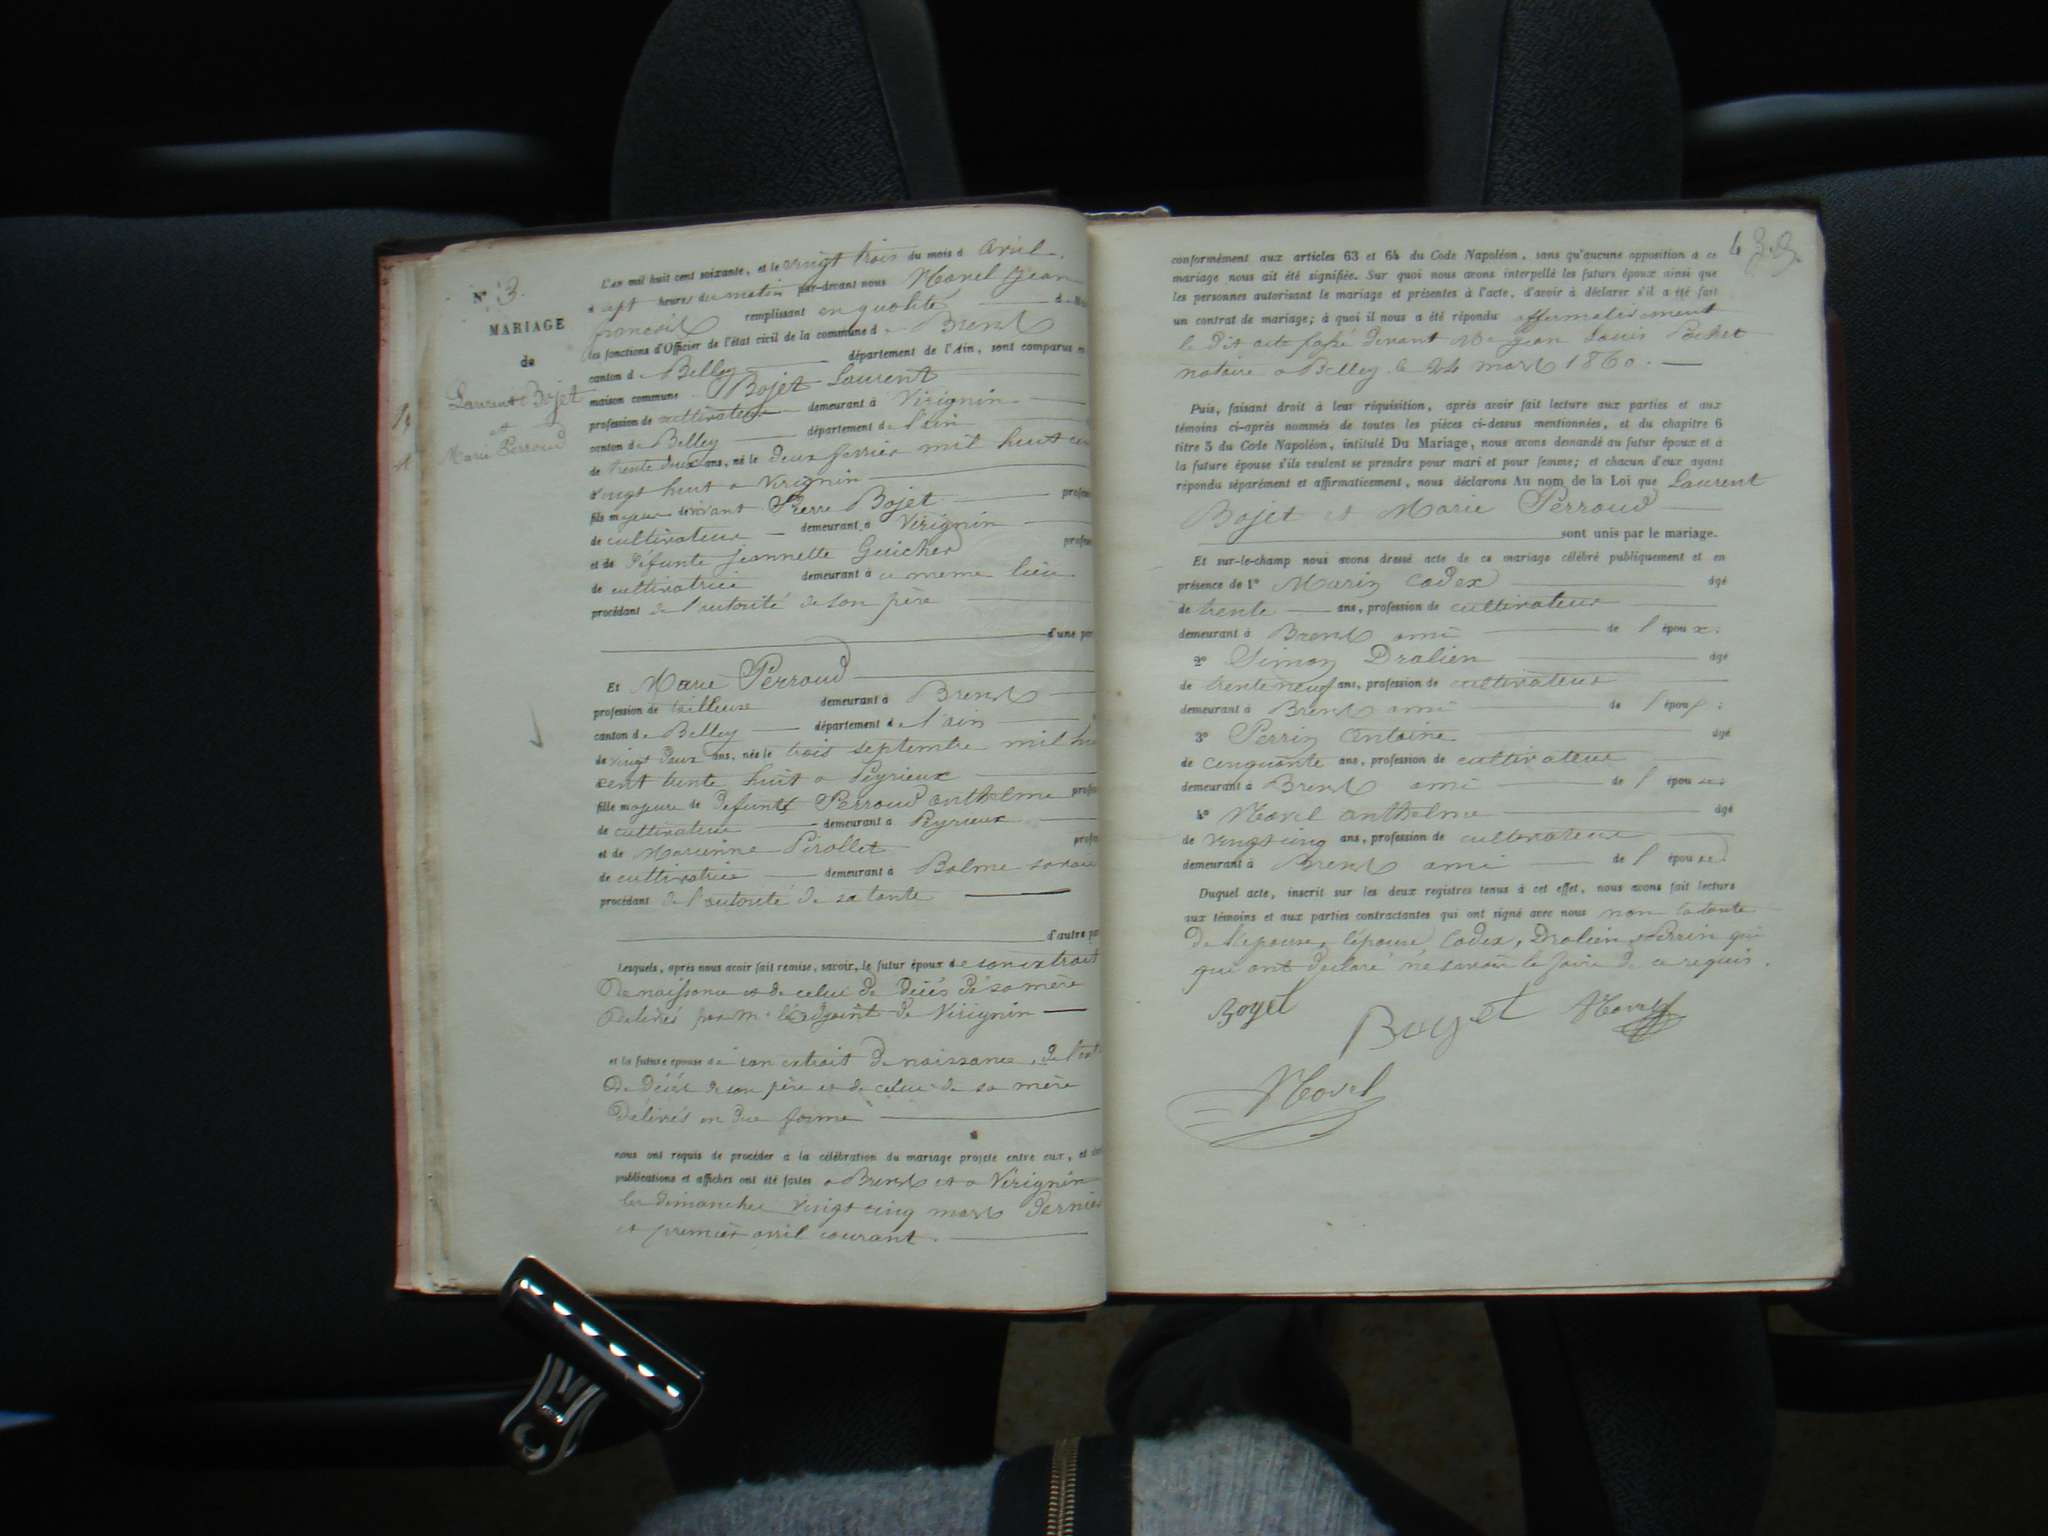 N° 3.
MARIAGE
de
Laurent Bojet
et
Marie Perroud
L'an mil huit cent soixante, et le vingt trois du mois d avril
à sept heures du matin par-devant nous Morel Jean
françois remplissant en qualité d
les fonctions d'Officier de l'état civil de la commune de Brens
canton de Belley département de l'Ain, sont comparus en
maison commune Bojet Laurent
profession de cultivateur demeurant à Virignin
canton de Belley département de l'ain
de trente deux ans, né le deux fevrier mil huit cent
vingt huit a Virignin
fils majeur de vivant Pierre Bojet profes
de cultivateur demeurant à Virignin
et de défunte Jeannette Guicher profes
de cultivatrice demeurant à ce meme lieu
procédant de l'autorité de son père
d'une par
Et Marie Perroud
profession de tailleuse demeurant à Brens
canton de Belley département de l'ain
de vingt deux ans, née le trois septembre mil hui
cent trente huit a Peyrieux
fille majeure de defunt Perroud anthelme profes
de cultivateur demeurant à Peyrieux
et de Marienne Pirollet profes
de cultivatrice demeurant à Balme
procédant de l'autorité de sa tante
d'autre par
Lesquels, après nous avoir fait remise, savoir, le futur époux de son extrait
De naissance et de celui de décés de sa mère
Délivrés par Mr l'adjoint de Virignin
et la future épouse de son extrait de naissance, de l'ext
De décés de son père et de celui de sa mère
Délivrés en due forme
nous ont requis de procéder à la célébration du mariage projeté entre eux, et dont
publications et affiches ont été faites a Brens et a Virignin
les dimanches vingt cinq mars dernier
et premier avril courant.
4
conformément aux articles 63 et 64 du Code Napoléon, sans qu'aucune opposition à ce
mariage nous ait été signifiée. Sur quoi nous avons interpellé les futurs époux ainsi que
les personnes autorisant le mariage et présentes à l'acte, d'avoir à déclarer s'il a été fait
un contrat de mariage; à quoi il nous a été répondu affirmativement
le dit acte passé devant Me Jean Louis Pochet
notaire a Belley le 24 mars 1860.
Puis, faisant droit à leur réquisition, après avoir fait lecture aux parties et aux
témoins ci-après nommés de toutes les pièces ci-dessus mentionnées, et du chapitre 6
titre 5 du Code Napoléon, intitulé Du Mariage, nous avons demandé au futur époux et à
la future épouse s'ils veulent se prendre pour mari et pour femme; et chacun d'eux ayant
répondu séparément et affirmativement, nous déclarons Au nom de la Loi que Laurent
Bojet et Marie Perroud
sont unis par le mariage.
Et sur-le-champ nous avons dressé acte de ce mariage célébré publiquement et en
présence de 1° Marin Codex âgé
de trente ans, profession de cultivateur
demeurant à Brens ami de l'époux.
2° Simon Dralien âgé
de trente neuf ans, profession de cultivateur
demeurant à Brens ami de l'époux.
3° Perrin Antoine âgé
de cinquante ans, profession de cultivateur
demeurant à Brens ami de l'épouse
4° Morel anthelme âgé
de vingt cinq ans, profession de cultivateur
demeurant à Brens ami de l'épouse.
Duquel acte, inscrit sur les deux registres tenus à cet effet, nous avons fait lecture
aux témoins et aux parties contractantes qui ont signé avec nous non la tante
De l'épouse, l'épouse, Codex, Dralien et Perrin qui
que ont déclaré ne savoir le faire de ce requis.
Boyet
Boyet
Morel
Morel